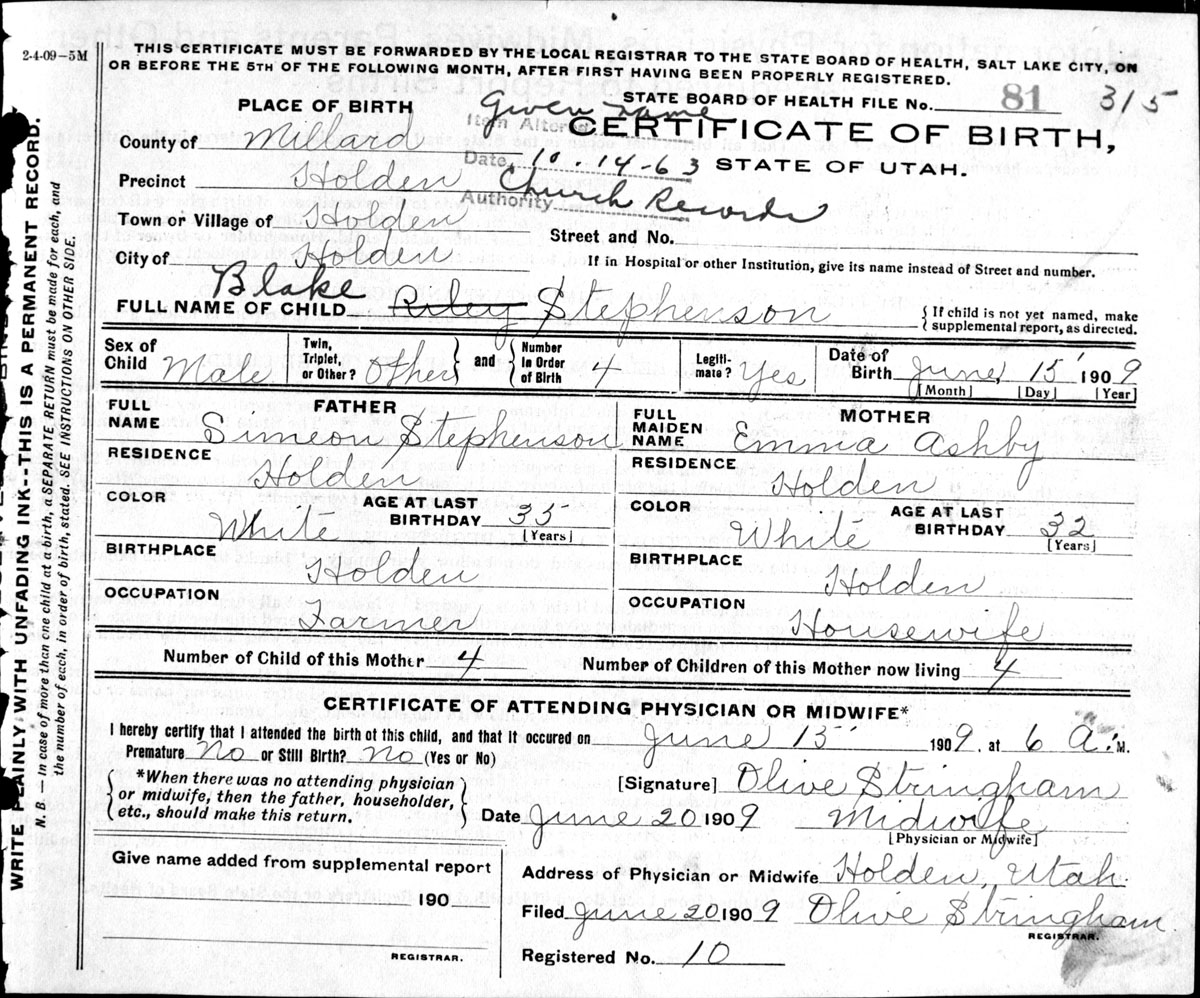 2-4-09-5M
THIS CERTIFICATE MUST BE FORWARDED BY THE LOCAL REGISTRAR TO THE STATE BOARD OF HEALTH, SALT LAKE CITY, ON
OR BEFORE THE 5TH OF THE FOLLOWING MONTH, AFTER FIRST HAVING BEEN PROPERLY REGISTERED.
PLACE OF BIRTH
STATE BOARD OF HEALTH FILE No. 81 315
Item Altered Given name
CERTIFICATE OF BIRTH,
County of Millard
Date 10-14-63
STATE OF UTAH.
Precinct Holden
Authority Church Records
Town or Village of Holden
Street and No.
City of Holden
If in Hospital or other Institution, give its name instead of Street and number.
Blake
FULL NAME OF CHILD Riley Stephenson
{If child is not yet named, make
supplemental report, as directed.
Sex of Child Male
Twin, Triplet, or Other? Other } and { Number In Order of Birth 4
Legiti-mate? Yes
Date of Birth June, 15 1909
[Month] [Day] [Year]
FATHER
FULL NAME Simeon Stephenson
RESIDENCE Holden
COLOR White
AGE AT LAST BIRTHDAY 35 [Years]
BIRTHPLACE Holden
OCCUPATION Farmer
MOTHER
FULL MAIDEN NAME Emma Ashby
RESIDENCE Holden
COLOR White
AGE AT LAST BIRTHDAY 32 [Years]
BIRTHPLACE Holden
OCCUPATION Housewife
Number of Child of this Mother 4 Number of Children of this Mother now living 4
CERTIFICATE OF ATTENDING PHYSICIAN OR MIDWIFE*
I hereby certify that I attended the birth of this child, and that it occured on June 15 1909. at 6 A. M.
Premature No or Still Birth? No (Yes or No)
{ *When there was no attending physician
or midwife, then the father, householder,
etc., should make this return. }
[Signature] Olive Stringham
Date June 20 1909 Midwife
[Physician or Midwife]
Give name added from supplemental report
190
REGISTRAR.
Address of Physician or Midwife Holden, Utah.
Filed June 20 1909 Olive Stringham
REGISTRAR.
Registered No. 10
WRITE PLAINLY WITH UNFADING INK--THIS IS A PERMANENT RECORD.
N. B. — In case of more then one child at a birth, a SEPARATE RETURN must be made for each, and
the number of each, in order of birth, stated. SEE INSTRUCTIONS ON OTHER SIDE.